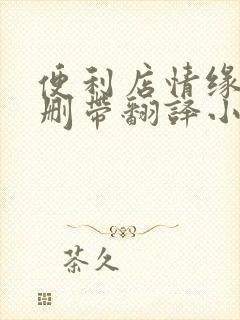 便利店情缘
删带翻译小
茶久